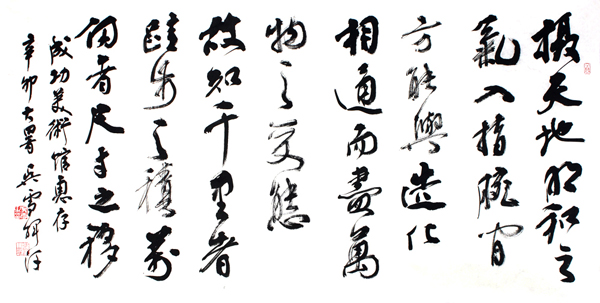 摄天地阳和之
氣入指腕间
方能與造化
相通而盡萬
物之变態
故知千里者
跬步之積萬
仞者尺寸之移
成功美術館惠存
辛卯大暑 吴雪辉